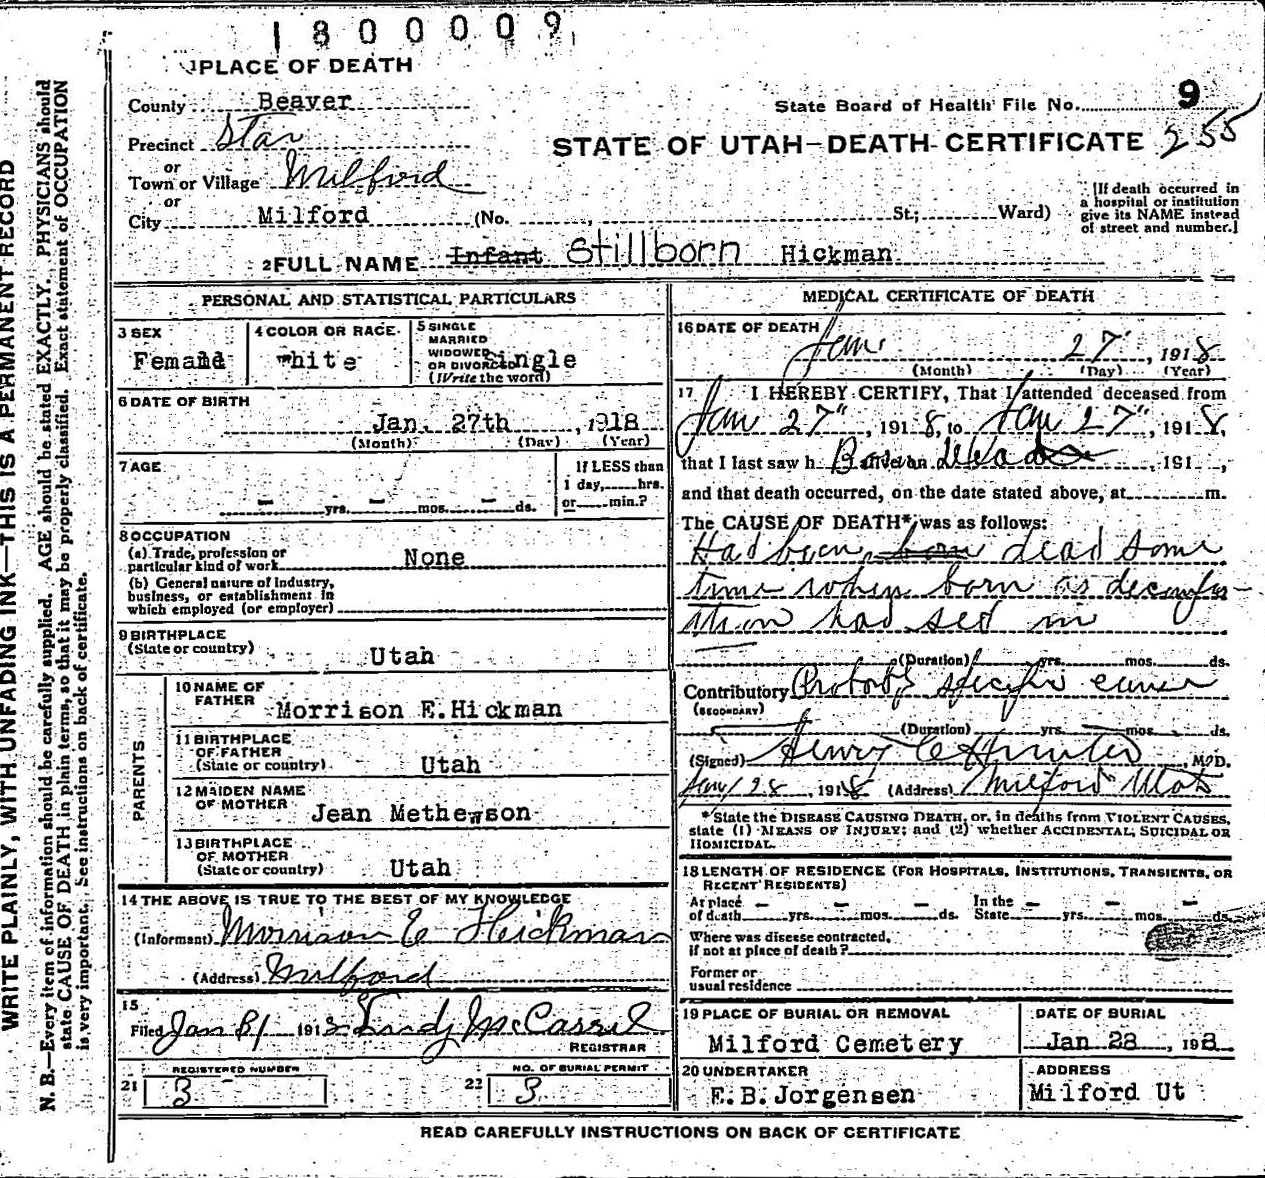 1800009
1 PLACE OF DEATH
County Beaver
State Board of Health File No. 9
Precinct Star
STATE OF UTAH—DEATH CERTIFICATE 255
or
Town or Village Milford
or
City Milford (No. , St; Ward)
[If death occurred in
a hospital or institution
give its NAME instead
of street and number.]
2 FULL NAME Infant Stillborn Hickman
PERSONAL AND STATISTICAL PARTICULARS
3 SEX
Female
4 COLOR OR RACE
White
5 SINGLE
MARRIED
WIDOWED
OR DIVORCED Single
(Write the word)
6 DATE OF BIRTH
Jan. 27th, 1918
(Month) (Day) (Year)
7 AGE
- yrs. - mos. - ds.
If LESS than
1 day, hrs.
or min.?
8 OCCUPATION
(a) Trade, profession or
particular kind of work None
(b) General nature of industry,
business, or establishment in
which employed (or employer)
9 BIRTHPLACE
(State or country) Utah
PARENTS
10 NAME OF
FATHER Morrison E. Hickman
11 BIRTHPLACE
OF FATHER
(State or country) Utah
12 MAIDEN NAME
OF MOTHER Jean Methewson
13 BIRTHPLACE
OF MOTHER
(State or country) Utah
14 THE ABOVE IS TRUE TO THE BEST OF MY KNOWLEDGE
(Informant) Morrison E Hickman
(Address) Milford
15
Filed Jan 31 1918
REGISTRAR
REGISTERED NUMBER
21 3
NO. OF BURIAL PERMIT
22 3
MEDICAL CERTIFICATE OF DEATH
16 DATE OF DEATH
Jan. 27, 1918
(Month) (Day) (Year)
17 I HEREBY CERTIFY, That I attended deceased from
Jan 27", 1918, to Jan 27", 1918,
that I last saw h Born alive on Dead, 191 ,
and that death occurred, on the date stated above, at m.
The CAUSE OF DEATH* was as follows:
Had been born dead some
time when born as decomposi-
tion had set in
(Duration) yrs. mos. ds.
Contributory Probably specific cause
(SECONDARY)
(Duration) yrs. mos. ds.
(Signed) Henry C Hunter, M.D.
Jan 28, 1918 (Address) Milford Utah
*State the DISEASE CAUSING DEATH, or, in deaths from VIOLENT CAUSES,
state (1) MEANS OF INJURY; and (2) whether ACCIDENTAL, SUICIDAL OR
HOMICIDAL.
18 LENGTH OF RESIDENCE (FOR HOSPITALS, INSTITUTIONS, TRANSIENTS, OR
RECENT RESIDENTS)
At place
of death - yrs. - mos. - ds.
In the
State - yrs. - mos. - ds.
Where was disease contracted,
if not at place of death?
Former or
usual residence
19 PLACE OF BURIAL OR REMOVAL
Milford Cemetery
DATE OF BURIAL
Jan 28, 1918.
20 UNDERTAKER
E.B. Jorgensen
ADDRESS
Milford Ut
READ CAREFULLY INSTRUCTIONS ON BACK OF CERTIFICATE
WRITE PLAINLY, WITH UNFADING INK—THIS IS A PERMANENT RECORD
N. B.—Every item of information should be carefully supplied. AGE should be stated EXACTLY. PHYSICIANS should
state CAUSE OF DEATH in plain terms, so that it may be properly classified. Exact statement of OCCUPATION
is very important. See instructions on back of certificate.